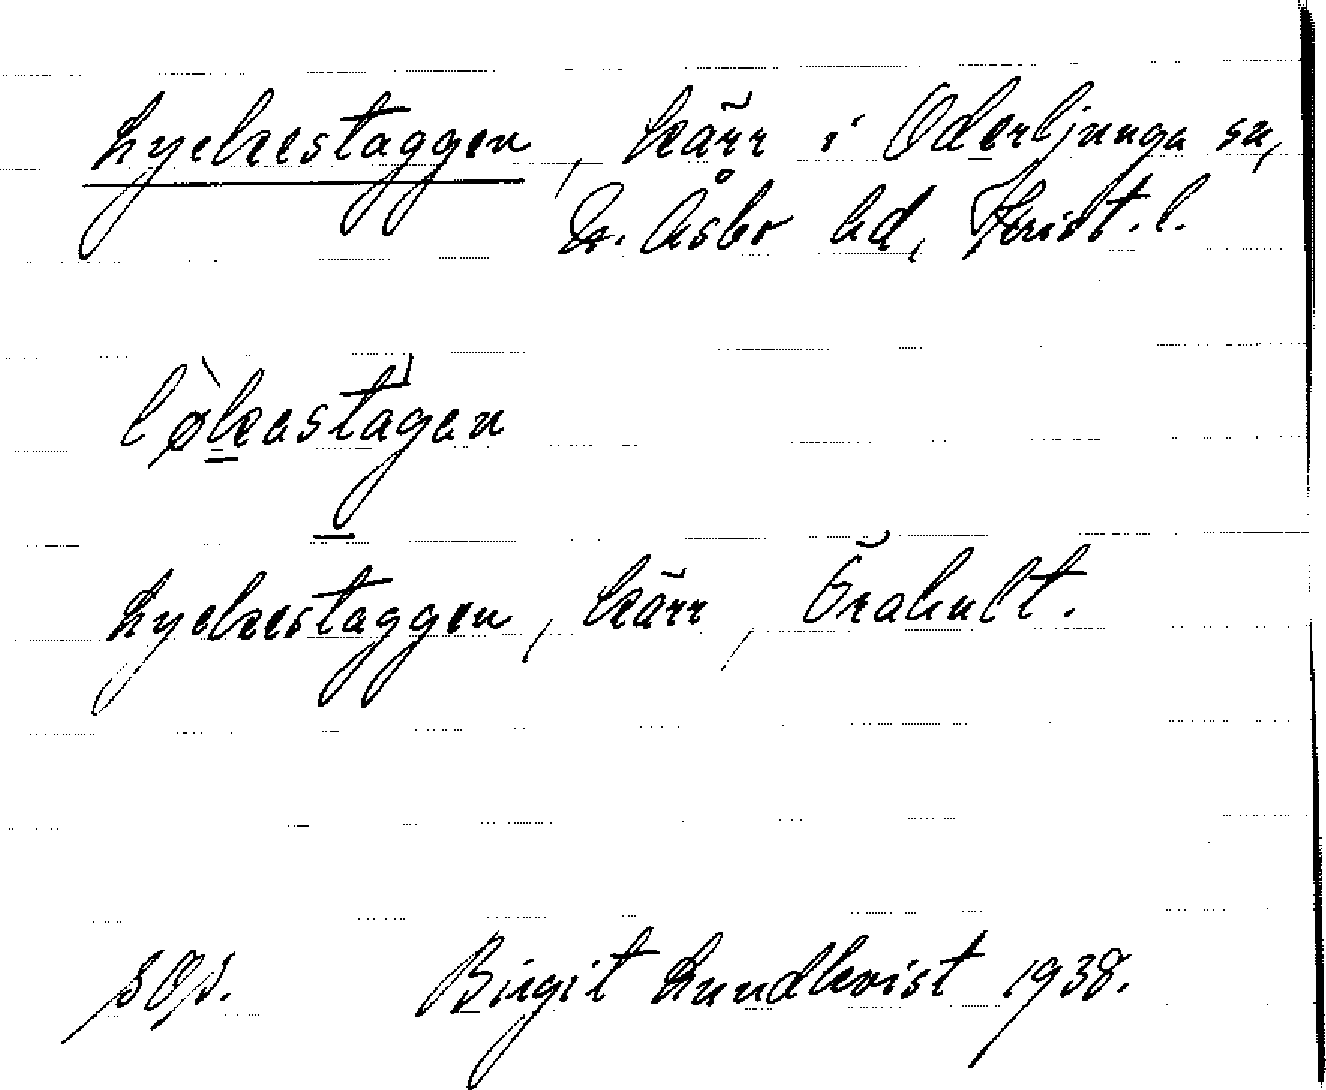 Lyckestaggen, kärr i Oderljunga sn,
N. Åsbo hd, Krist. l.
lø̀kastagan
Lyckestaggen, kärr, Örahult.
SOS. Birgit Lundkvist 1938.